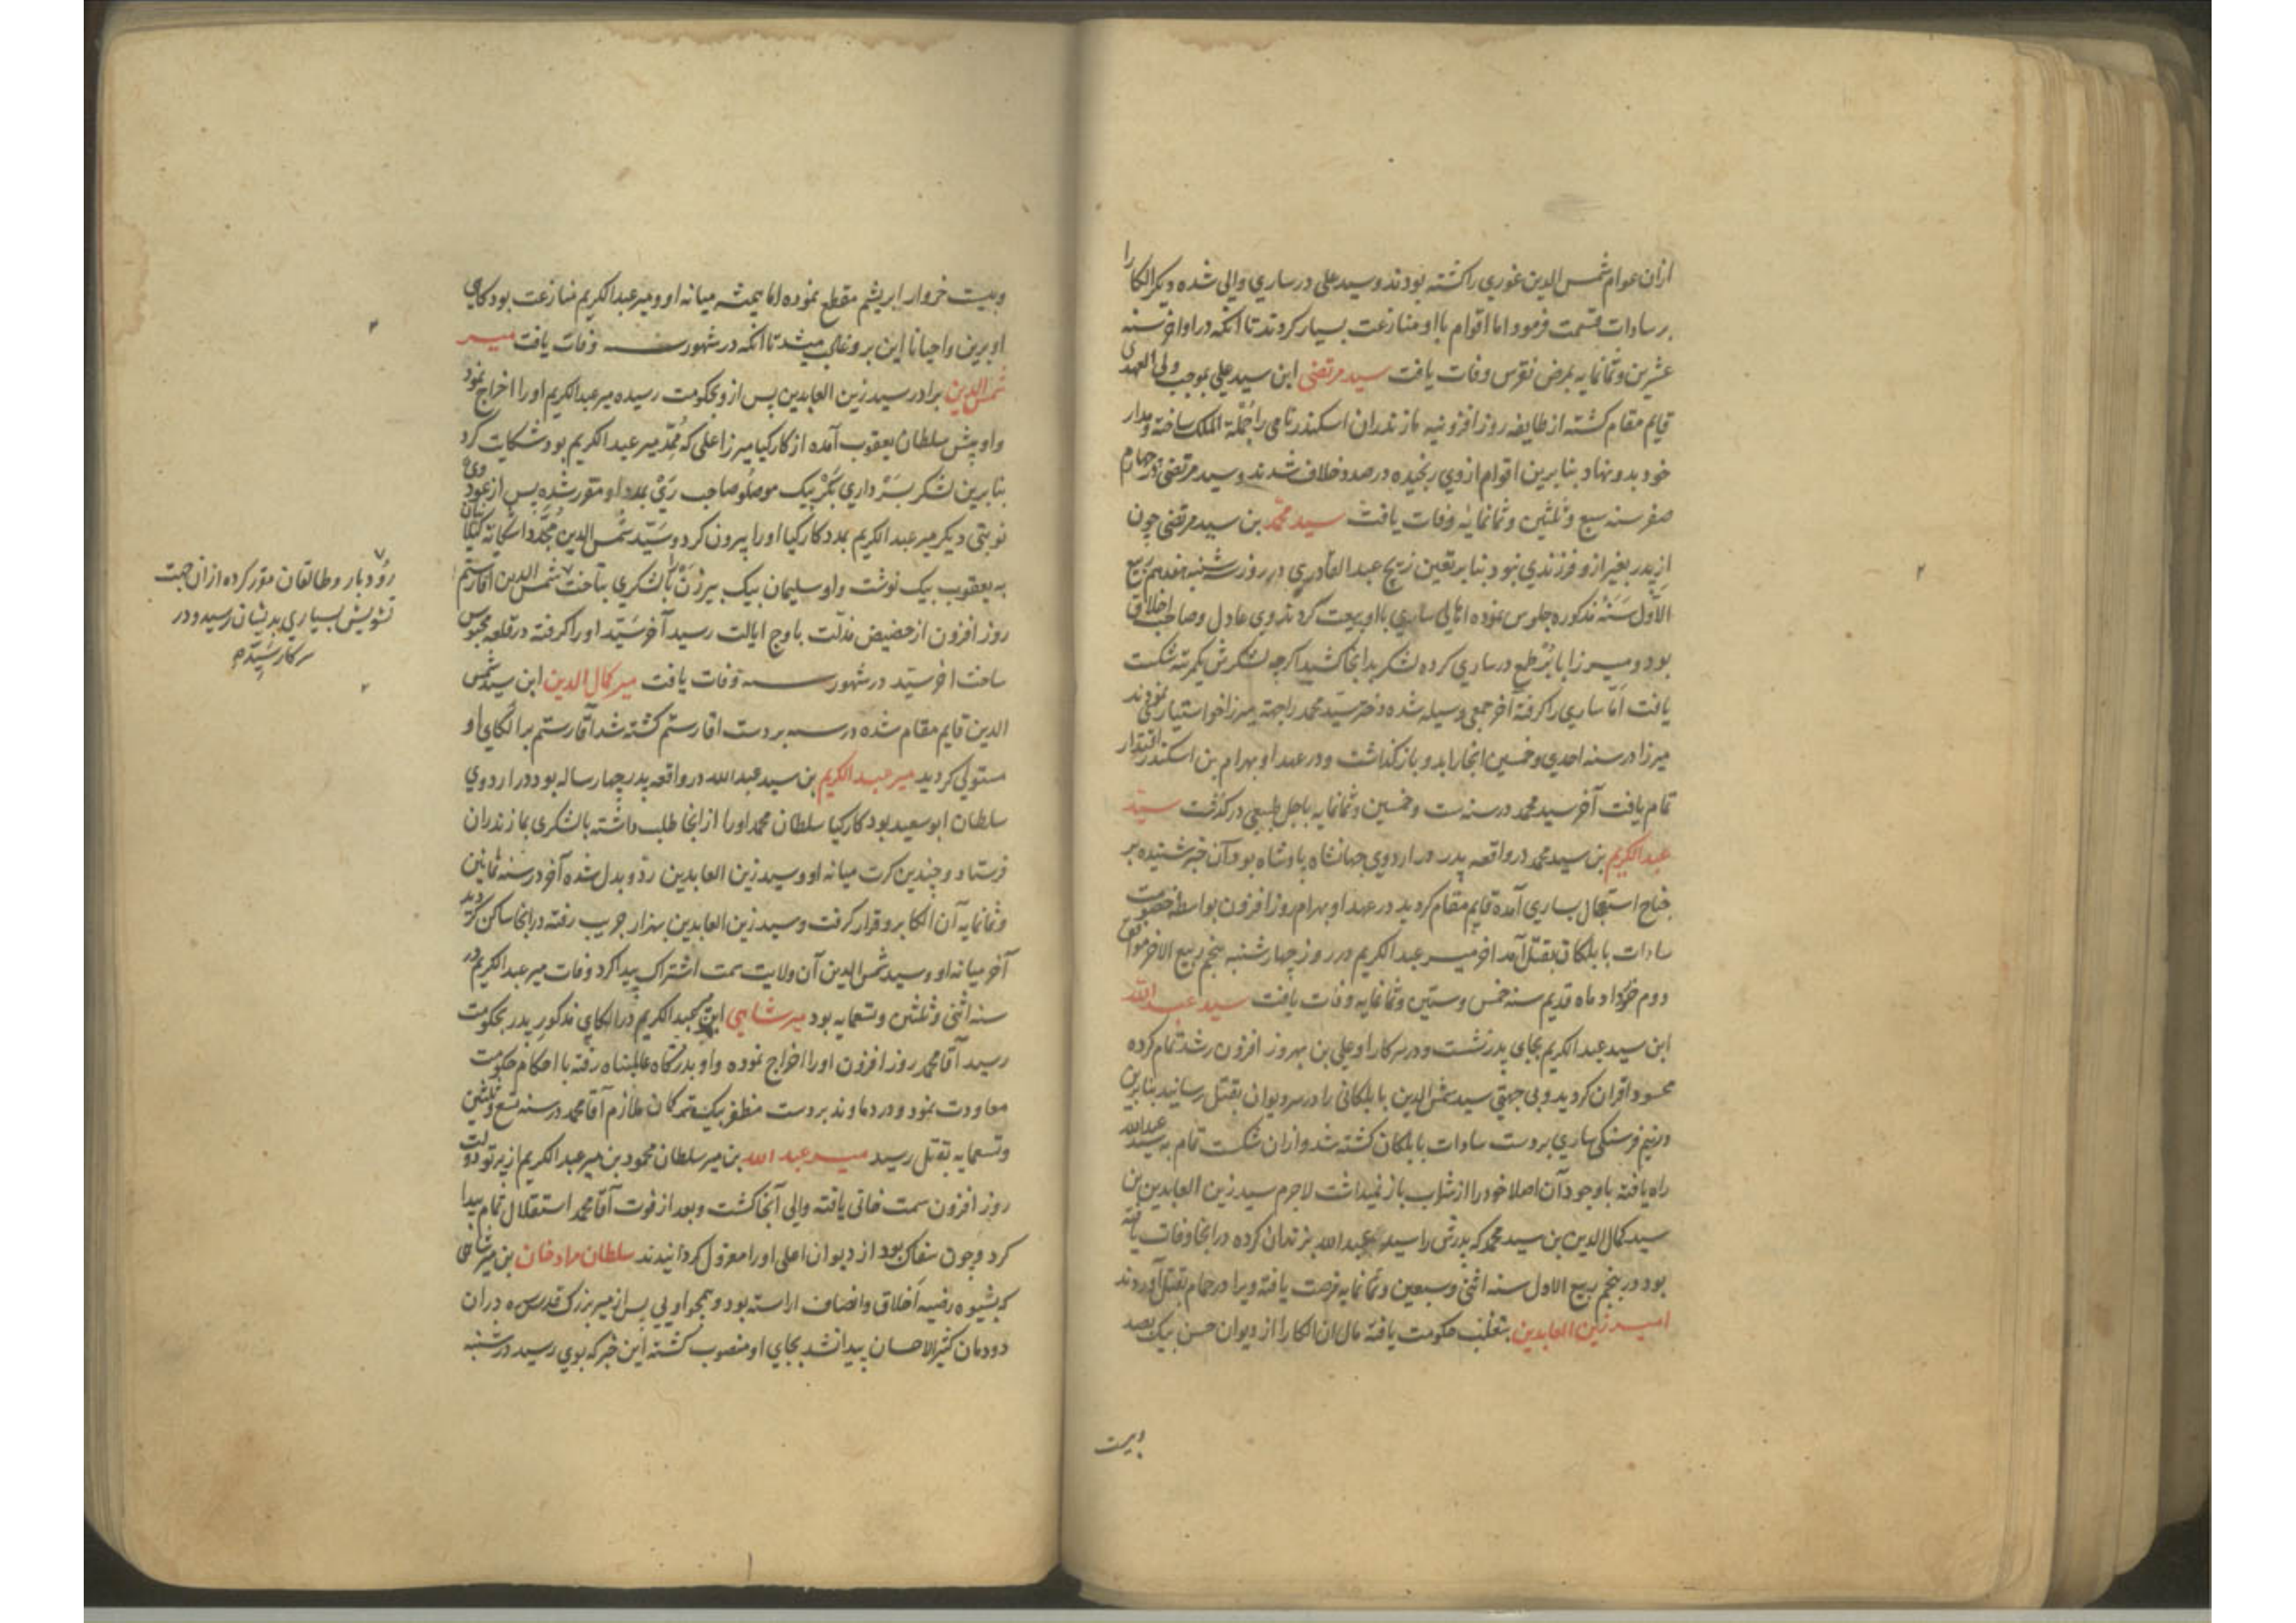 ازان عوام شمس الدین غوری را کشته بودند و سید علی در ساری والی شده دیگر الکا را
بر سادات قسمت فرمود اما اقوام با او منازعت بسیار کردند تا آنکه در اواخر سنه
عشرین و ثمانمایه بمرض نقرس وفات یافت سید مرتضی ابن سید علی بموجب ولی العهدی
قایم مقام کشته از طایفه روز افزونیه مازندران اسکندر نامی را جملة الملک ساخته و مدار
خود بدو نهاد بنابرین اقوام از وی رنجیده در صدد خلاف شدند و سید مرتضی در چهارم
صفر سنه سبع و ثلثین و ثمانمایه وفات یافت سید محمد بن سید مرتضی چون
از پدر بغیر ازو فرزندی نبود بنابر تعین زیج عبد القادری در روز سه شنبه هفدهم ربیع
الاول سنه مذکوره جلوس نموده اهالی ساری با او بیعت کردند وی عادل و صاحب اخلاق
بود و میرزا بابر طمع در ساری کرده لشکر بدانجا کشید اکرچه لشکرش یکمرتبه شکست
یافت اما ساری را کرفته آخر جمعی وسیله شده دختر سید محمد را جهة میرزا خواستیاری نمودند
میرزا در سنه احدی و خمسین انجا را بدو باز کذاشت و در عهد او بهرام بن اسکندر اقتدار
تمام یافت آخر سید محمد در سنه ست و خمسین و ثمانمایه باجل طبیعی در کذشت سید
عبد الکریم بن سید محمد در واقعه پدر در اردوی جهانشاه پادشاه بود آن خبر شنیده بر
جناح استعجال بساری آمده قایم مقام کردید در عهد او بهرام روز افزون بواسطه خصومت
سادات بابلکان بقتل آمد اخر میر عبد الکریم در روز چهارشنبه پنجم ربیع الاخر موافق
دوم خرداد ماه قدیم سنه خمس و ستین و ثمانمایه وفات یافت سید عبد الله
ابن سید عبد الکریم بجای پدر نشست و در سرکار او علی بن بهروز افزون رشد تمام کرده
محسود اقران کردید و بی جهتی سید شمس الدین بابلکانی را در سر دیوان بقتل رسانید بنابرین
در نیم فرسنکی ساری بر دست سادات بابلکان کشته شد و ازان شکست تمام به سید عبد الله
راه یافته باوجود آن اصلا خود را از شراب باز نمیداشت لاجرم سید زین العابدین بن
سید کمال الدین بن سید محمد که پدرش را سید عبد الله بزندان کرده در انجا وفات یافته
بود در پنجم ربیع الاول سنه اثنی و سبعین و ثمانمایه فرصت یافته ویرا در حمام بقتل آوردند
امیر زین العابدین بتغلب حکومت یافته مال ان الکا را از دیوان حسن بیک بصد
وبیست
وبیست خروار ابریشم مقطع نموده اما همیشه میانه او و میر عبد الکریم منازعت بود کاهی
او برین و احیانا این برو غالب میشد تا آنکه در شهور سنه وفات یافت میر
شمس الدین برادر سید زین العابدین پس ازو بحکومت رسیده میر عبد الکریم او را اخراج نمود
و او پیش سلطان یعقوب آمده از کارکیا میرزا علی که ممد میر عبد الکریم بود شکایت کرد
بنابرین لشکر بسرداری بکر بیک موصلو صاحب ری بمدد او مقرر شده پس از عود وی
نوبتی دیکر میر عبد الکریم بمدد کارکیا او را بیرون کرد و سید شمس الدین مجددا شکایة کیا
به یعقوب بیک نوشت و او سلیمان بیک بیژن را با لشکری بتاخت شمس الدین اقا رستم
روز افزون از حضیض مذلت باوج ایالت رسید آخر سید او را کرفته در قلعه محبوس
ساخت اخر سید در شهور سنه وفات یافت میر کمال الدین ابن سید شمس
الدین قایم مقام شده در سنه بر دست اقا رستم کشته شد آقا رستم بر الکای او
مستولی کردید میر عبد الکریم بن سید عبد الله در واقعه پدر چهار ساله بود در اردوی
سلطان ابو سعید بود کارکیا سلطان محمد او را از انجا طلب داشته با لشکری بمازندران
فرستاد و چندین کرت میانه او و سید زین العابدین رد و بدل شده آخر در سنه ثمانین
و ثمانمایه آن الکا برو قرار کرفت و سید زین العابدین بهزار جریب رفته در انجا ساکن کردید
آخر میانه او و سید شمس الدین آن ولایت سمت اشتراک پیدا کرد وفات میر عبد الکریم در
سنه اثنی و ثلثین و تسعمایه بود میر شاهی ابن عبد الکریم در الکای مذکور پدر بحکومت
رسید آقا محمد روز افزون او را اخراج نموده و او بدرکاه عالمپناه رفته با احکام حکومت
معاودت نمود و در دماوند بر دست مظفر بیک ترکمان ملازم آقا محمد در سنه تسع و ثلثین
و تسعمایه بقتل رسید میر عبد الله بن میر سلطان محمود بن میر عبد الکریم از پرتو دولت
روز افزون سمت خانی یافته والی آنجا کشت و بعد از فوت آقا محمد استقلال تمام پیدا
کرد و چون سفاک بود از دیوان اعلی او را معزول کردانیدند سلطان مراد خان بن میر شاهی
که بشیوه رضیه اخلاق و انصاف اراسته بود و همچو اویی پس از میر بزرک قدس سره دران
دودمان کثیر الاحسان پیدا نشد بجای او منصوب کشته این خبر که بوی رسید در شنبه
رودبار و طالقان مقرر کرده ازان جهت
تشویش بسیاری بدیشان رسید و در
سرکار سید